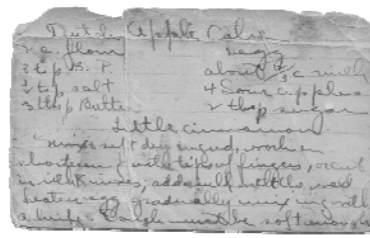 Dutch Apple Cake
2 c. flour 1 egg
3 tsp B. P. about 2/3 c milk
1/2 tsp salt 4 Sour apples
3 tbsp Butter 2 tbsp sugar
Little cinnamon
mix salt dry ingred, work in
shortening with tips of fingers, or cut
in with knives, add milk with the well
beaten egg gradually mixing with
a knife. Dough must be soft enough